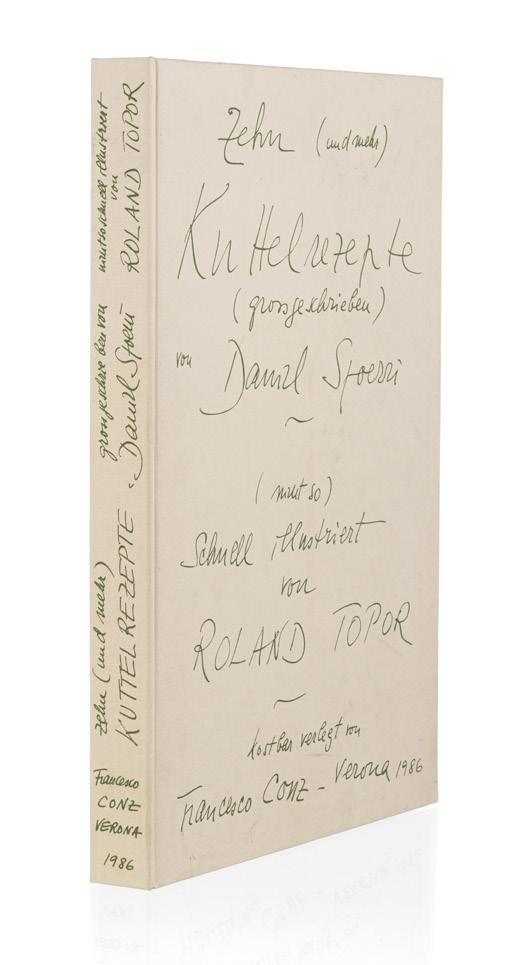 Zehn (und mehr)
Kuttelrezepte
(grossgeschrieben)
von Daniel Spoerri
(nicht so)
Schnell illustriert
von
ROLAND TOPOR
kostbar verlegt von
Francesco Conz - Verona 1986
zehn (und mehr)
KUTTELREZEPTE
grossgeschrieben von
Daniel Spoerri
nicht so schnell illustriert
von
ROLAND TOPOR
Francesco
CONZ
VERONA
1986